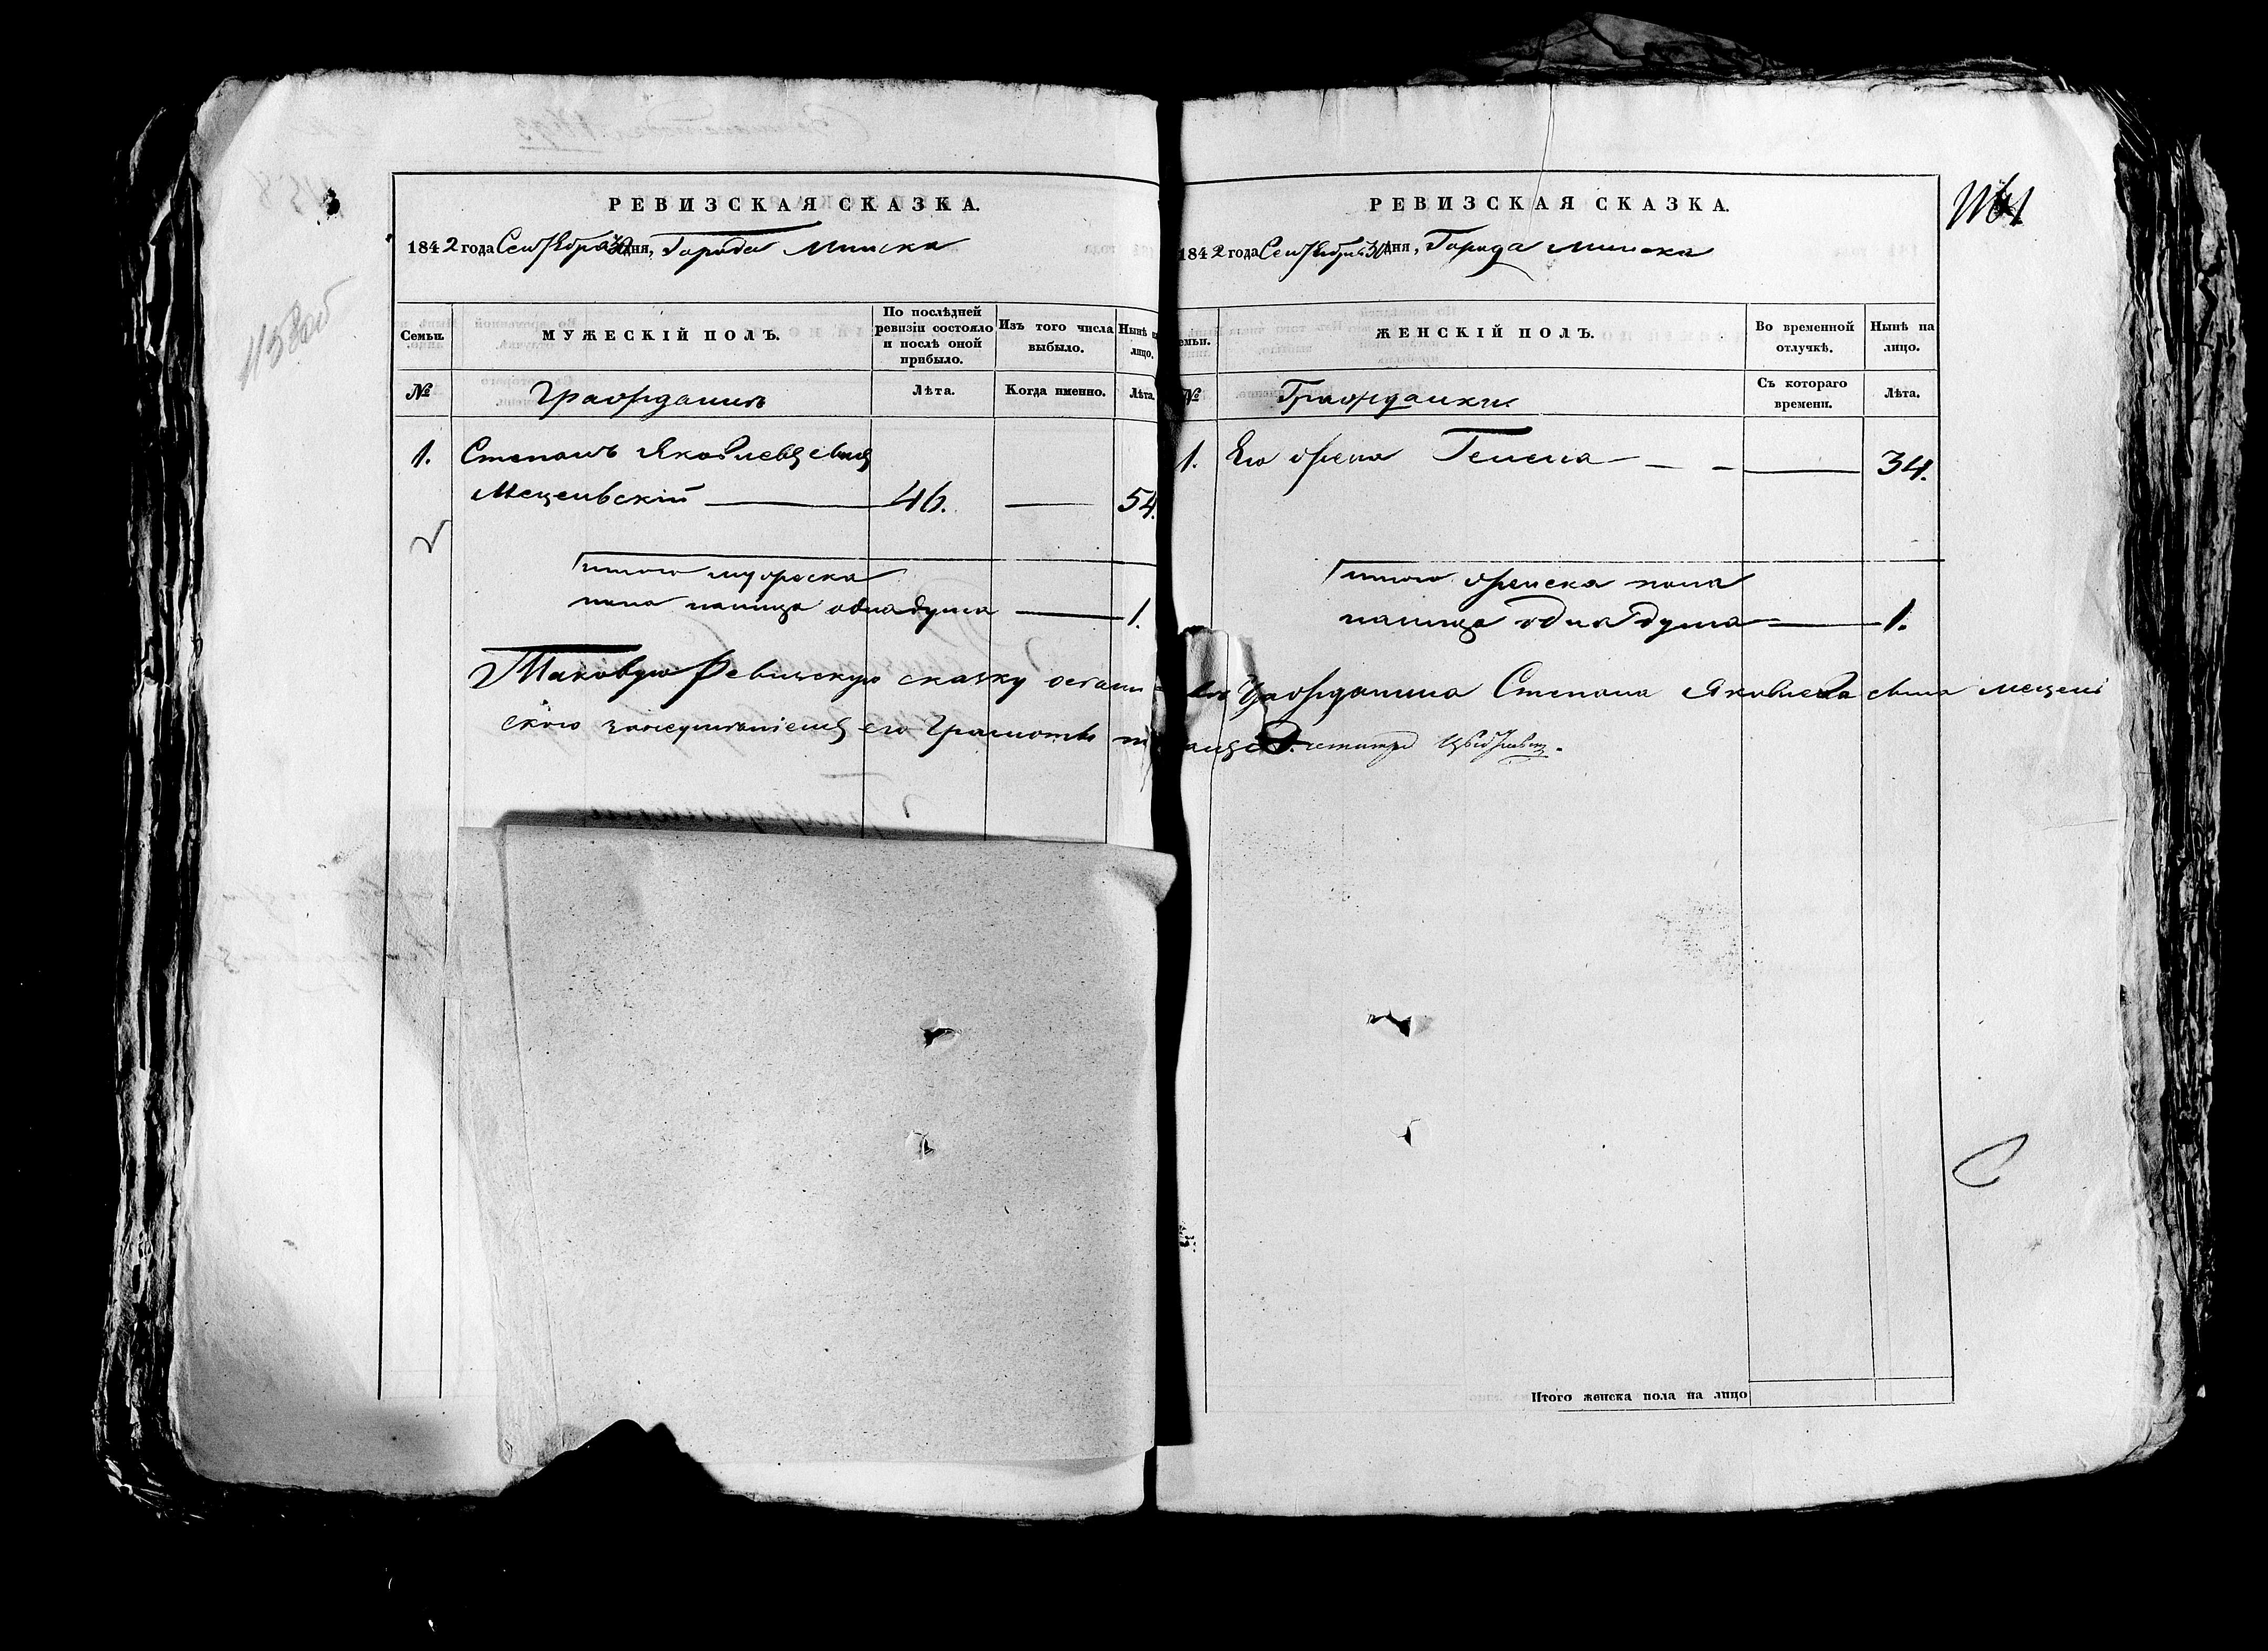 РЕВИЗСКАЯ СКАЗКА.
1842 года Сентября 30 дня, Города Минска
Семьи.
МУЖЕСКІЙ ПОЛЪ.
По послѣдней
ревизіи состояло
и послѣ оной
прибыло.
Изъ того числа
выбыло.
Нынѣ на
лицо.
№
Гражданинъ
Лѣта.
Когда именно.
Лѣта.
1. Степанъ Яковлевъ сынъ
Мецевскій 46. 54.
Итого мужеска
пола налицо одна душа 1.
Таковую Ревизскую сказку
ского за неумѣніемъ его Грамотѣ
РЕВИЗСКАЯ СКАЗКА.
1842 года Сентября 30 дня, Города Минска
емьи.
ЖЕНСКІЙ ПОЛЪ.
Во временной
отлучкѣ.
Нынѣ на
лицо.
№
Гражданки
Съ котораго
времени.
Лѣта.
1. Его жена Гелена 34.
Итого женска пола
налицо одна душа 1.
Гражданина Степана Яковлева сына
Итого женска пола на лицо